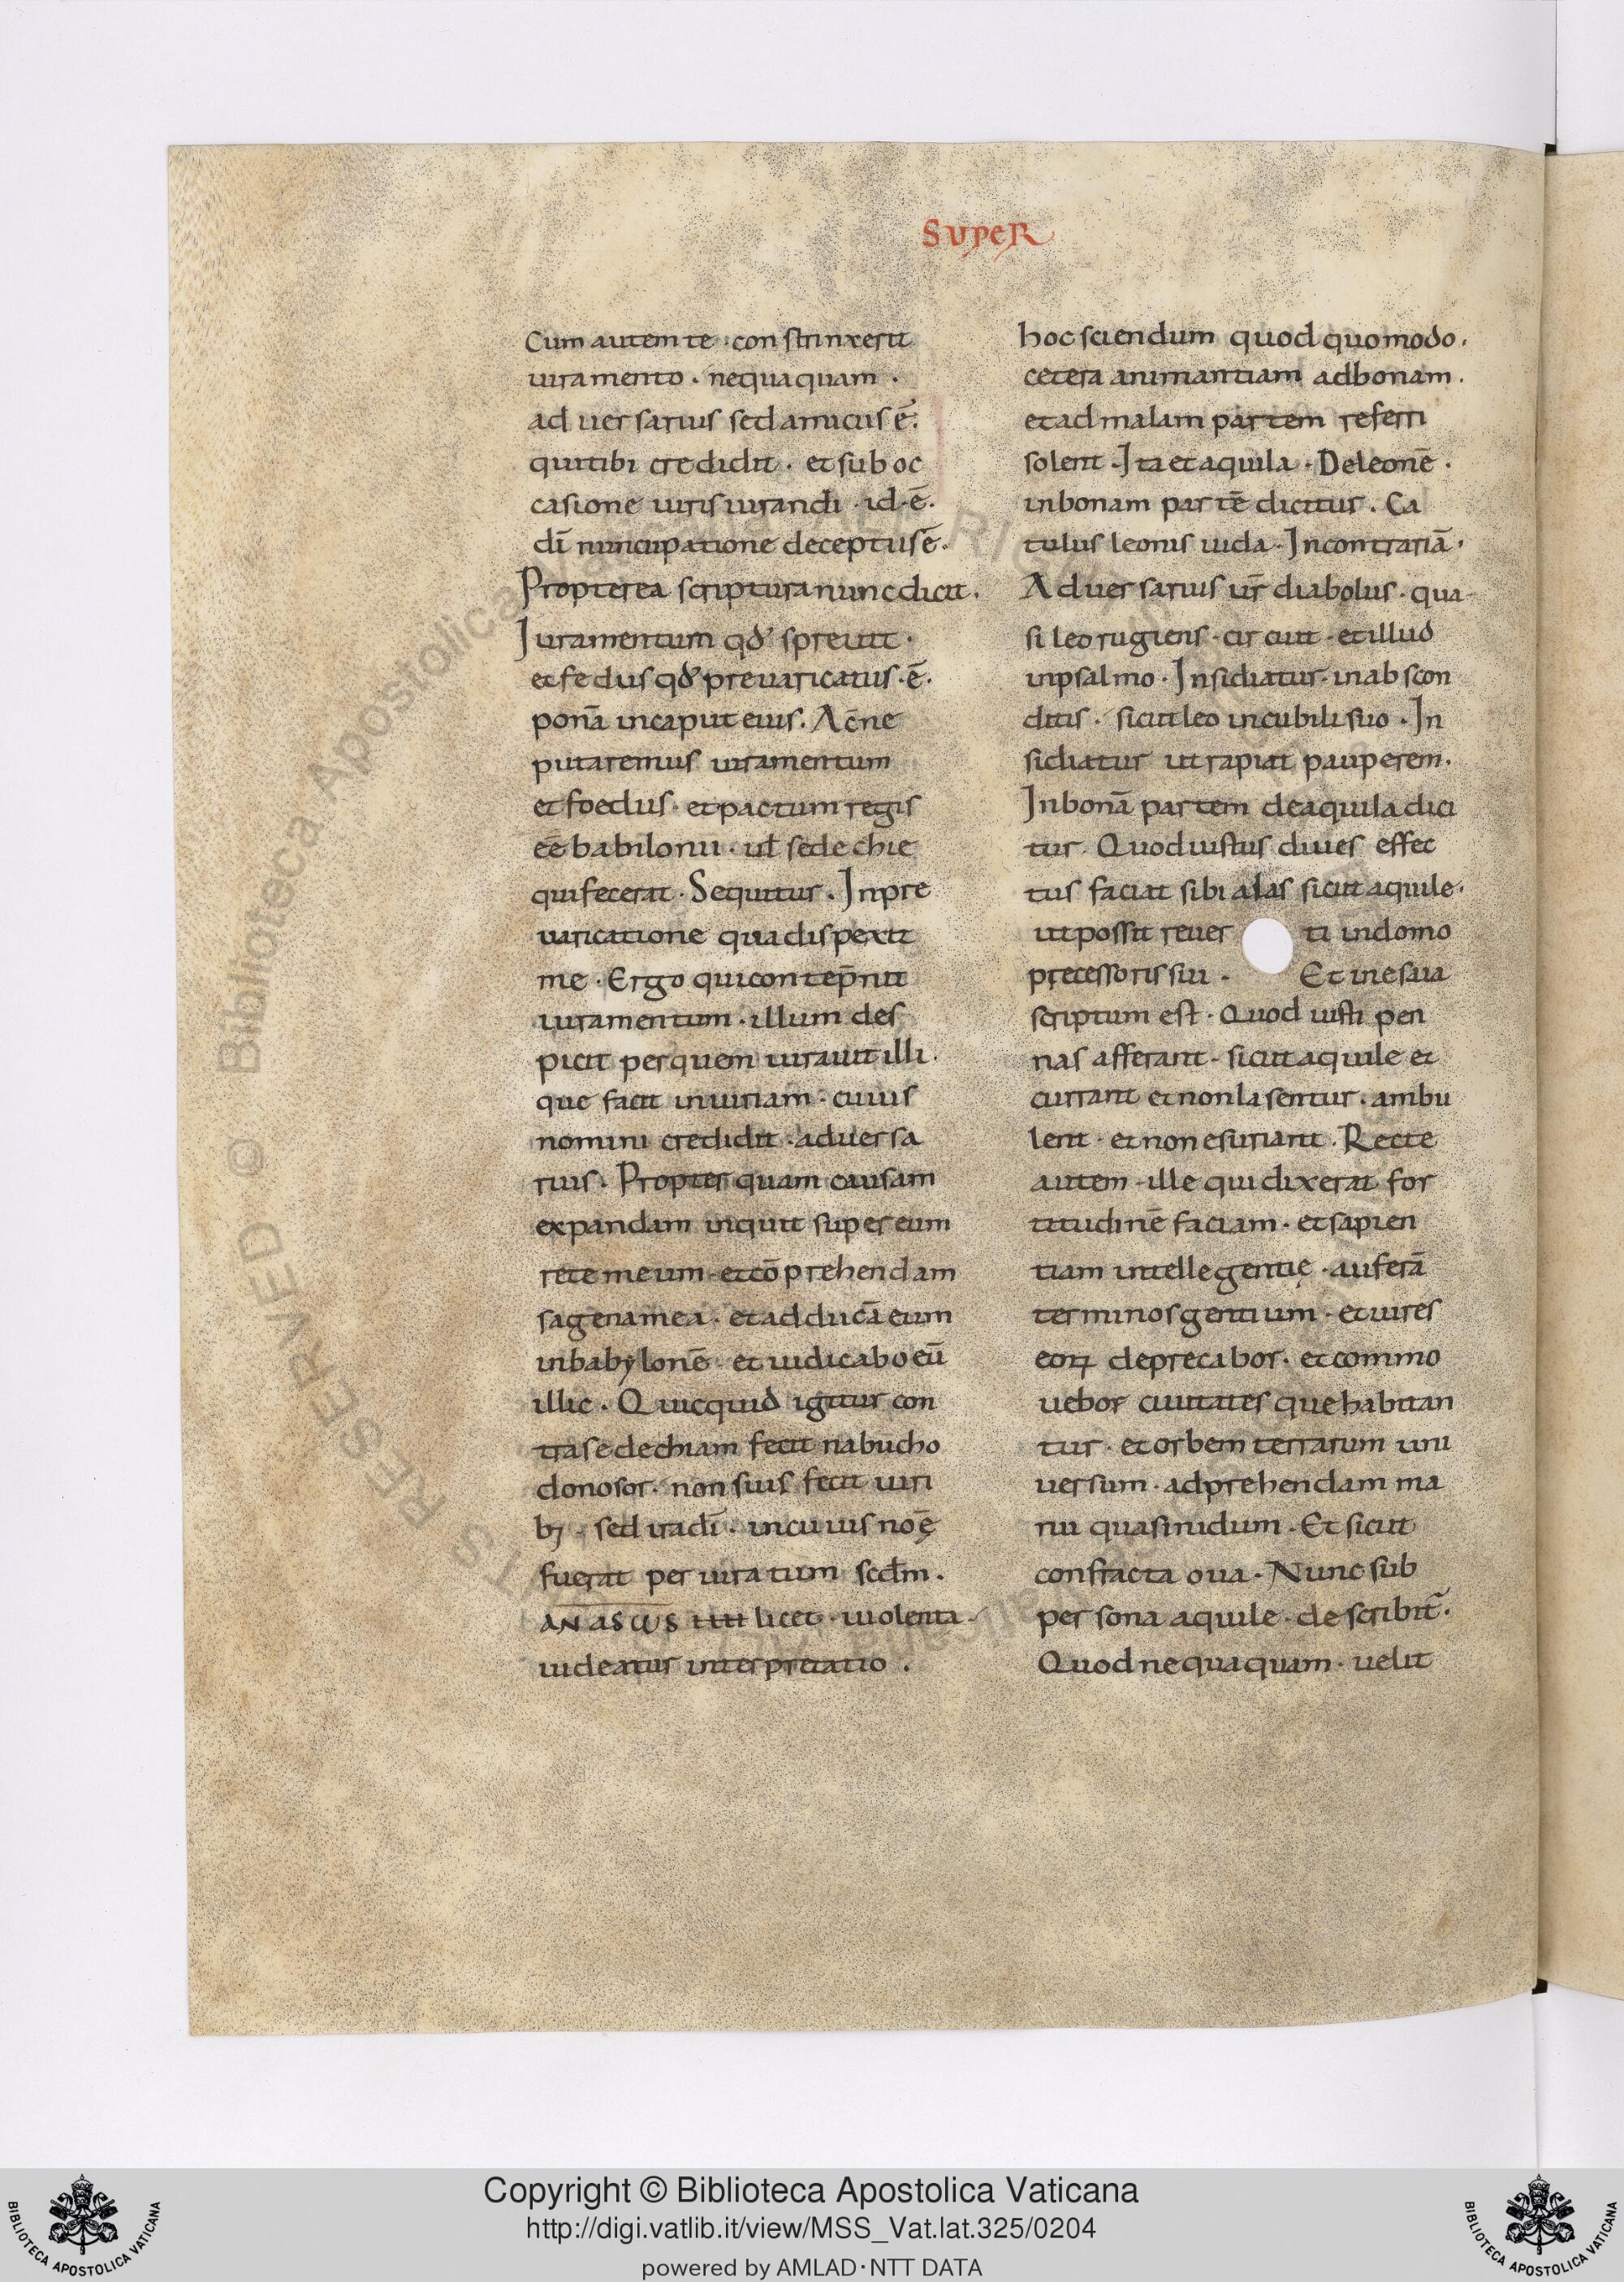 SUPER
Cum autem te · constrinxerit
iuramento · nequaquam ·
aduersarius sed amicus ē.
qui tibi credidit · et sub oc
casione iuris iurandi · id · ē.
dī nuncupatione deceptus ē.
Propterea scriptura nunc dicit.
Juramentum qđ spreuit ·
et fedus qđ preuaricatus · ē.
ponā in caput eius. Ac ne
putaremus iuramentum
et foedus · et pactum regis
eē babilonii · ul sedechie
qui fecerat · Sequitur. In pre
uaricatione qua dispexit
me · Ergo qui contep̄nit
iuramentum · illum des
picit per quem iurauit illi.
que facit iniuriam · cuius
nomini credidit · aduersa
rius. Propter quam causam
expandam inquit super eum
rete meum · et cōprehendam
sagena mea · et adducā eum
in babylonē · et iudicabo eū
illic. Quicquid igitur con
tra sedechiam fecit nabucho
donosor · non suis fecit uiri
bꝫ · sed ira dī · in cuius noē
fuerat periuratum · scđm.
AN ASωS IIII licet · uiolenta
uideatur interpretatio.
hoc sciendum quod quomodo.
cetera animantiam ad bonam.
et ad malam partem referri
solent · Ita et aquila · De leonē ·
in bonam partē dicitur. Ca
tulus leonis iuda · In contrariā ·
Aduersarius ur̄ diabolus · qua
si leo rugiens · circuit · et illud
in psalmo · Insidiatur · in abscon
ditis · sicut leo in cubili suo · In
sidiatur ut rapiat pauperem.
In bonā partem de aquila dici
tur. Quod iustus diues effec
tus faciat sibi alas sicut aquile.
ut possit reuer ti in domo
precessoris sui · Et in esaia
scriptum est · Quod iusti pen
nas afferant · sicut aquile et
currant et non lasentur · ambu
lent · et non esuriant. Recte
autem · ille qui dixerat for
titudinē faciam · et sapien
tiam intellegentię · auferā
terminos gentium · et uires
eoꝝ deprecabor · et commo
uebor ciuitates que habitan
tur · et orbem terrarum uni
uersum · adprehendam ma
nu quasi nidum · Et sicut
confracta oua · Nunc sub
persona aquile · describit̄.
Quod nequaquam · uelit
Copyright © Biblioteca Apostolica Vaticana
http://digi.vatlib.it/view/MSS_Vat.lat.325/0204
powered by AMLAD·NTT DATA
BIBLIOTECA APOSTOLICA VATICANA
BIBLIOTECA APOSTOLICA VATICANA